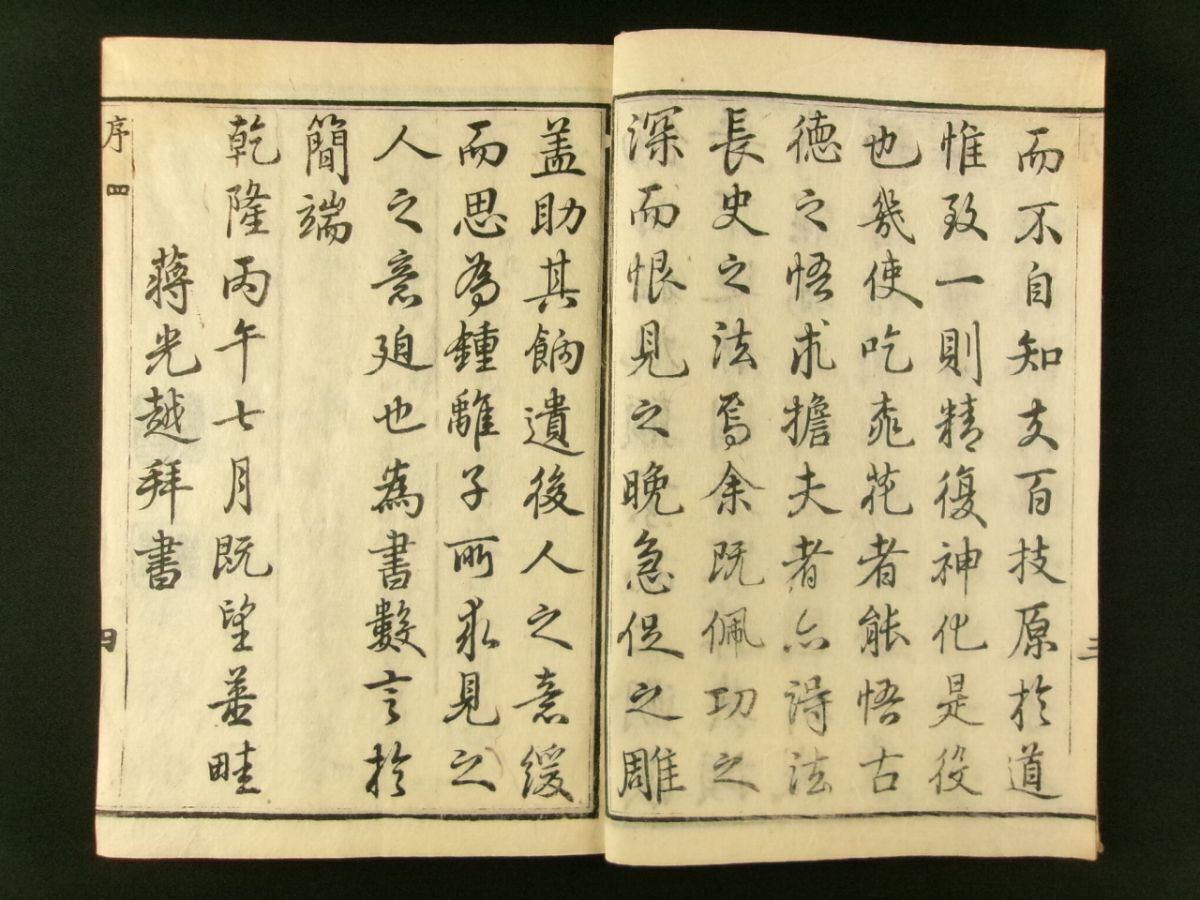 而不自知文百技原於道
惟致一則精復神化是役
也幾使吃桃花者能悟古
德之悟求擔夫者亦得法
長史之法焉余既佩功之
深而恨見之晚急促之雕
三
蓋助其餉遺後人之意緩
而思為鍾離子所求見之
人之意迫也為書數言於
簡端
乾隆丙午七月既望並畦
蔣光越拜書
序 四
四